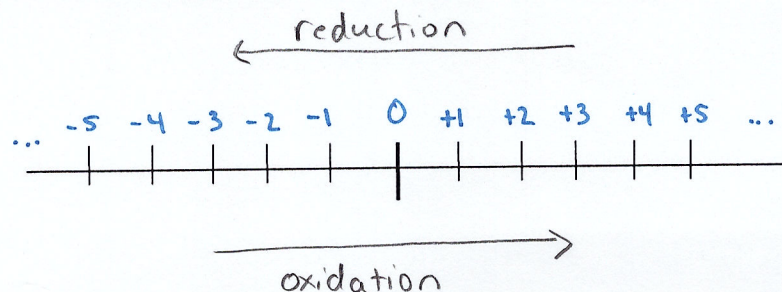 reduction
... -5 -4 -3 -2 -1 0 +1 +2 +3 +4 +5 ...
oxidation